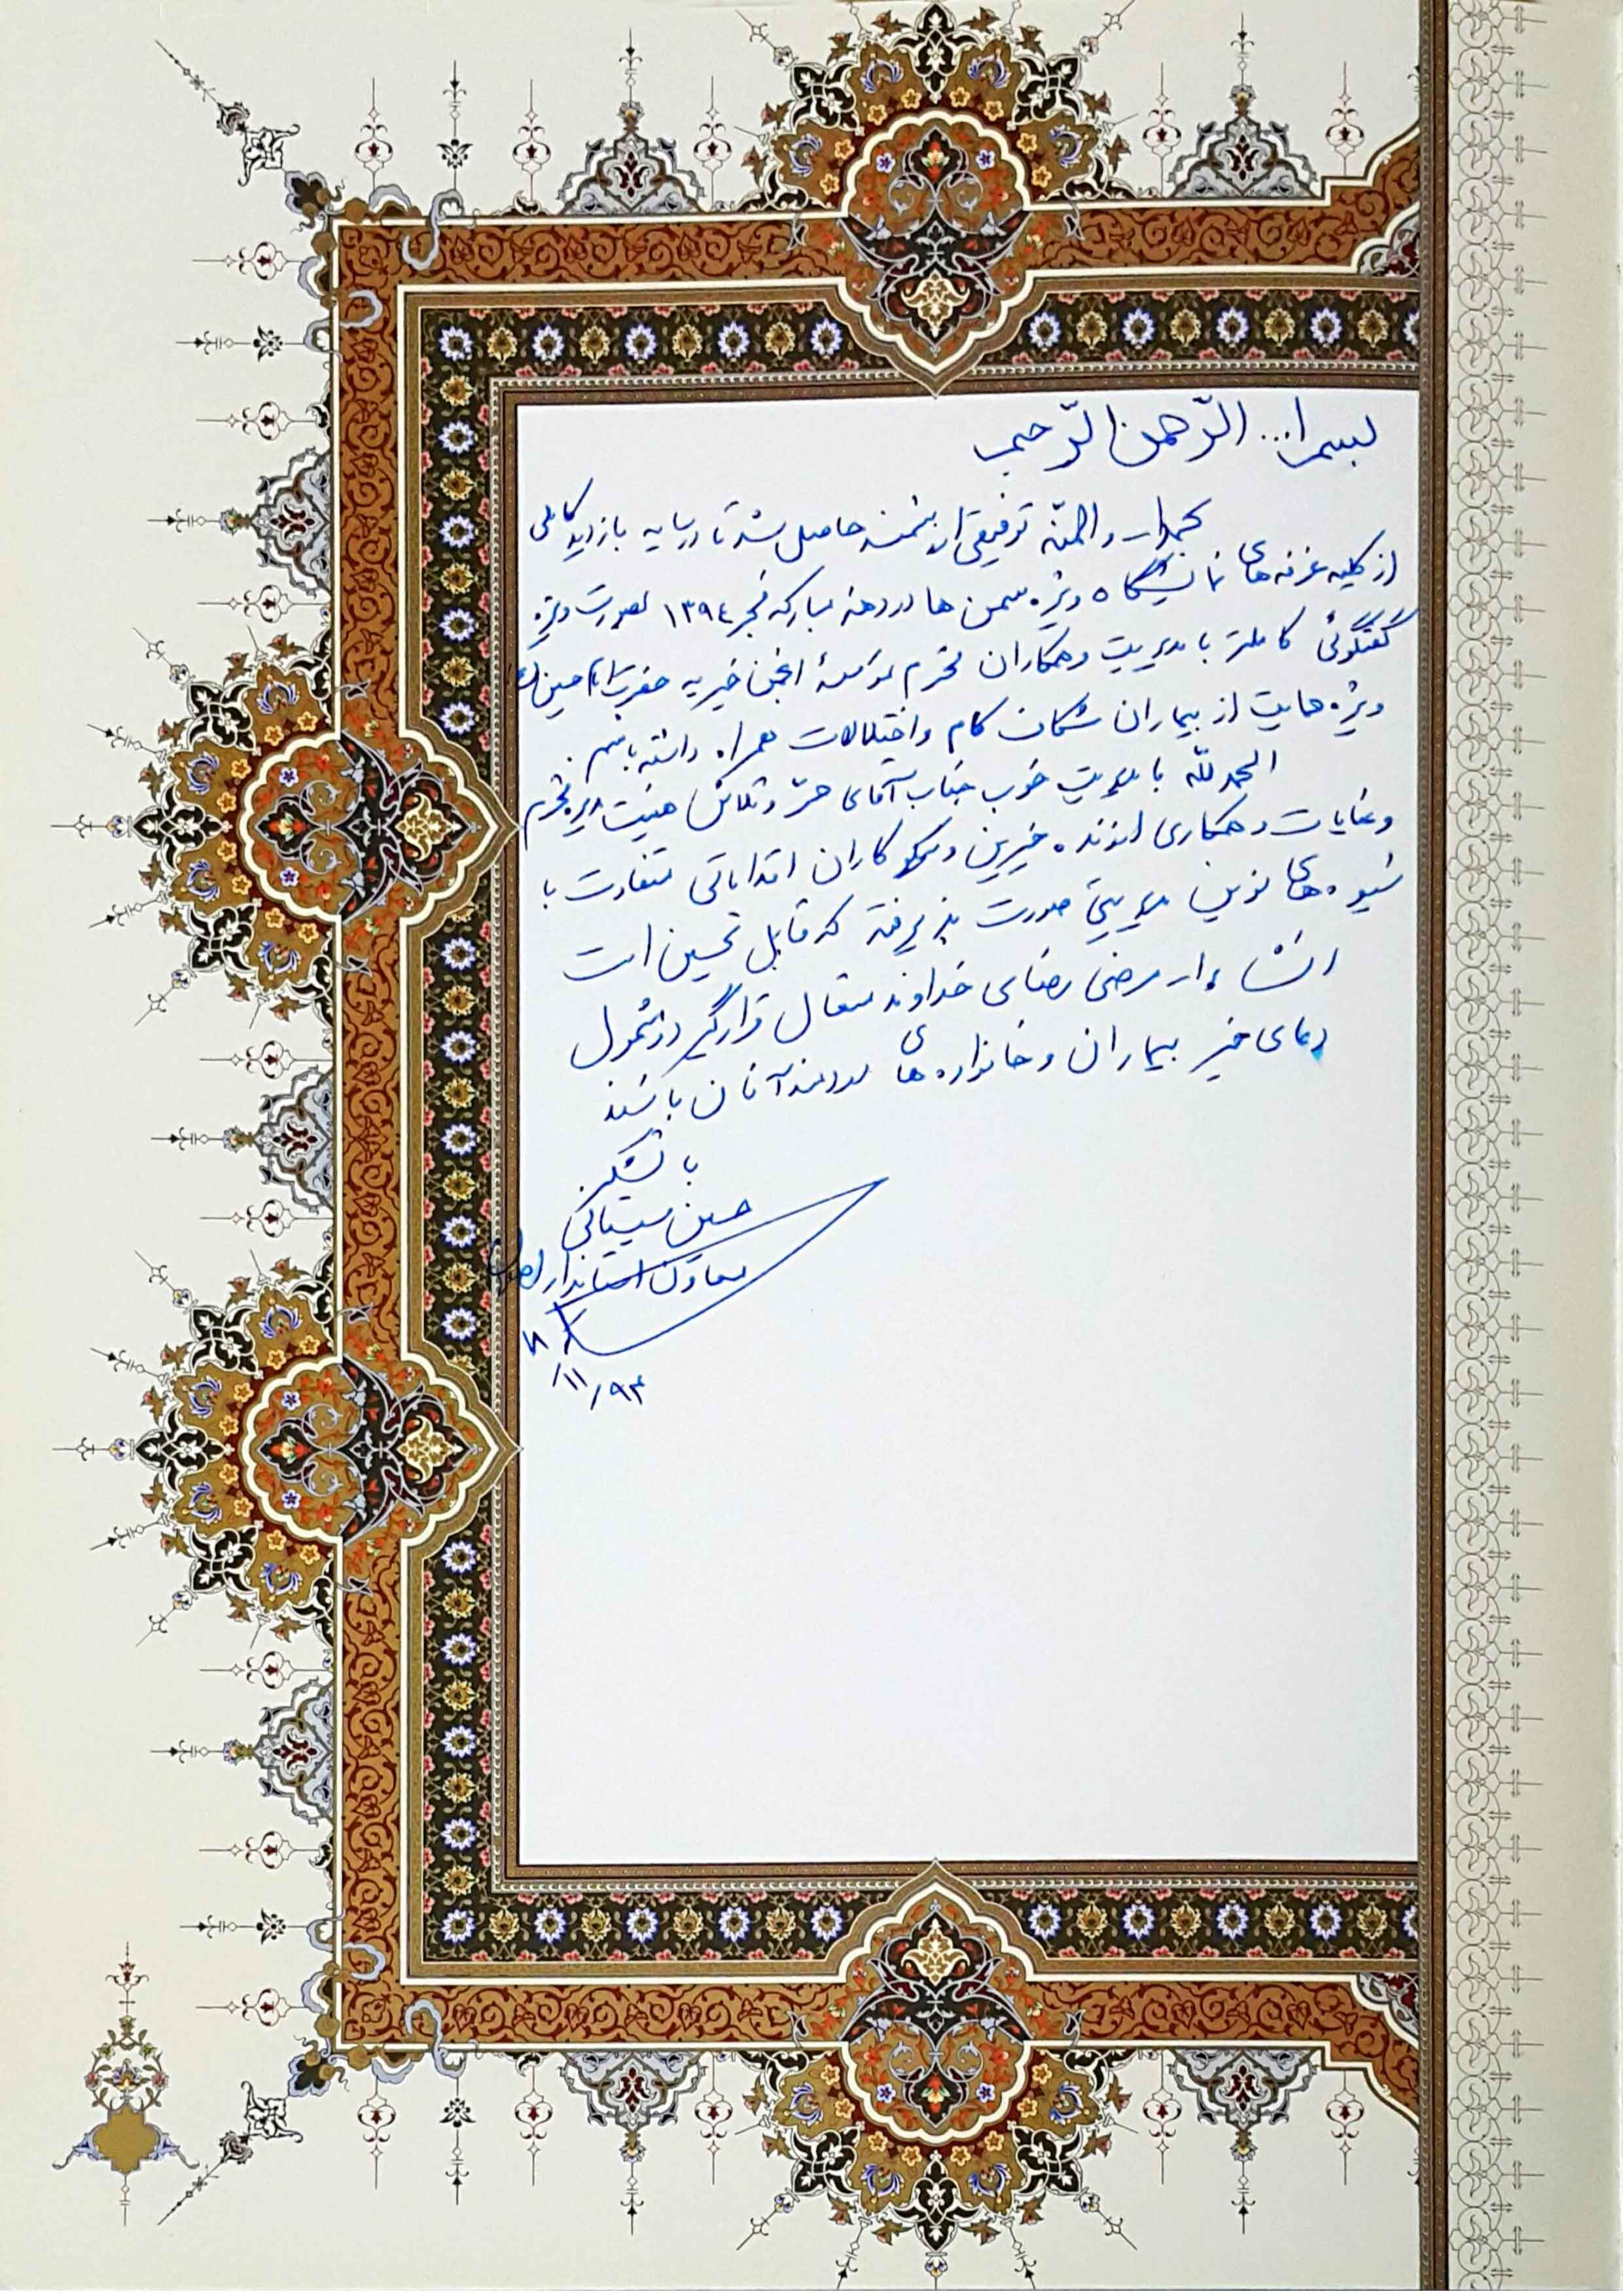 بسم ا... الرّحمن الرّحیم
بحمدا... و المنّه توفیقی ارزشمند حاصل شد تا در سایه بازدید کاملی
از کلیه غرفه های نمایشگاه ویژه سمن ها در دهه مبارکه فجر ۱۳۹۴ بصورت ویژه
گفتگوئی کاملتر با مدیریت و همکاران محترم مؤسسهٔ انجمن خیریه حضرت
ویژه حمایت از بیماران شکاف کام و اختلالات همراه داشته باشم.
الحمدللّه با مدیریت خوب جناب آقای و تلاش هیئت مدیره محترم
و عنایات و همکاری ارزنده خیرین و نیکوکاران اقداماتی متفاوت با
شیوه های نوین مدیریتی صورت پذیرفته که قابل تحسین است
انشاءا... مرضی رضای خداوند متعال قرار گیرد و مشمول
دعای خیر بیماران و خانواده های دردمند آنان باشند
با تشکر
حسین سیستانی
معاون استاندار اصفهان
۹۴/۱۱/۱۸